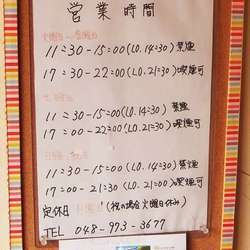 営業時間
火曜日～金曜日
11:30-15:00(LO.14:30)禁煙
17:30-22:00(LO.21:30)喫煙可
土曜日
11:30-15:00(LO.14:30) 禁煙
17:00-22:00(LO.21:30)喫煙可
日曜・祝日
11:30-15:00(LO.14:30)禁煙
17:00-21:30(LO.21:00)喫煙可
定休日 月曜日(祝の場合火曜日休み)
TEL 048-973-3677